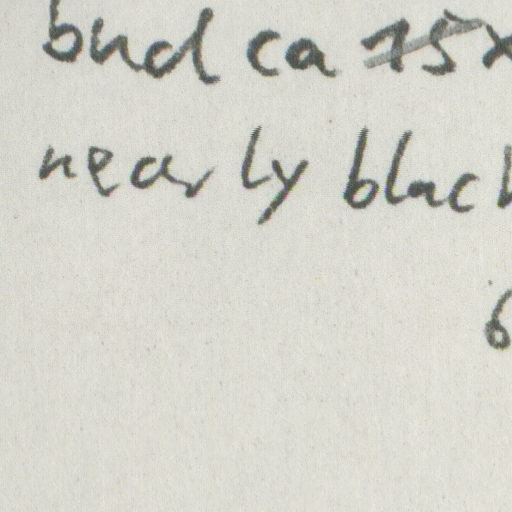 bud ca 75x
nearly black
6